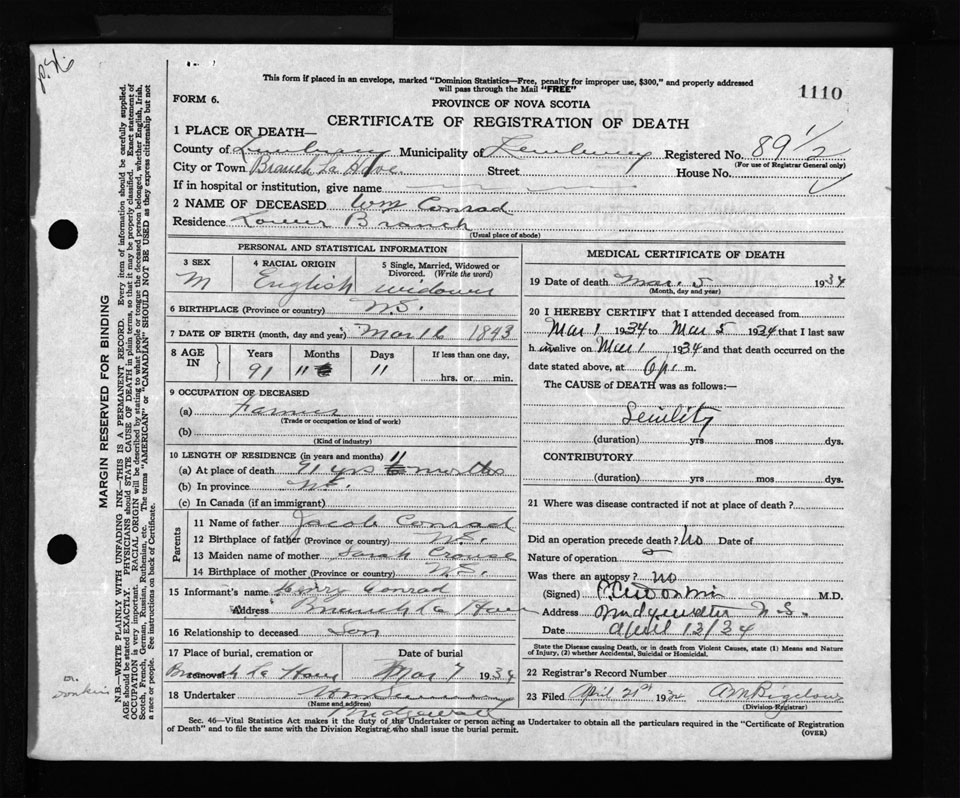 This form if placed in an envelope, marked "Dominion Statistics—Free, penalty for improper use, $300," and properly addressed
will pass through the Mail "FREE"
1110
FORM 6.
PROVINCE OF NOVA SCOTIA
CERTIFICATE OF REGISTRATION OF DEATH
1 PLACE OF DEATH—
County of Lunenburg Municipality of Lunenburg Registered No. 89 1/2
(For use of Registrar General only)
City or Town Branch La Have Street House No.
If in hospital or institution, give name
2 NAME OF DECEASED Wm Conrad
Residence Lower Branch
(Usual place of abode)
PERSONAL AND STATISTICAL INFORMATION
3 SEX M
4 RACIAL ORIGIN English
5 Single, Married, Widowed or Divorced. (Write the word) widower
6 BIRTHPLACE (Province or country) N.S.
7 DATE OF BIRTH (month, day and year) Mar 16 1843
8 AGE IN
Years Months Days If less than one day,
91 11 11 hrs. or min.
9 OCCUPATION OF DECEASED
(a) Farmer
(Trade or occupation or kind of work)
(b)
(Kind of industry)
10 LENGTH OF RESIDENCE (in years and months)
(a) At place of death 91 yrs 11 months
(b) In province N.S.
(c) In Canada (if an immigrant)
Parents
11 Name of father Jacob Conrad
12 Birthplace of father (Province or country) N.S.
13 Maiden name of mother Sarah Crouse
14 Birthplace of mother (Province or country) N.S.
15 Informant's name Conrad
Address Branch La Have
16 Relationship to deceased Son
17 Place of burial, cremation or removal Date of burial
Branch La Have Mar 7 1934
18 Undertaker
(Name and address)
MEDICAL CERTIFICATE OF DEATH
19 Date of death Mar. 5 1934
(Month, day and year)
20 I HEREBY CERTIFY that I attended deceased from
Mar 1 1934 to Mar 5 1934 that I last saw
h im alive on Mar 1 1934 and that death occurred on the
date stated above, at 6 p. m.
The CAUSE of DEATH was as follows:—
Senility
(duration) yrs mos dys.
CONTRIBUTORY
(duration) yrs mos dys.
21 Where was disease contracted if not at place of death?
Did an operation precede death? No Date of
Nature of operation
Was there an autopsy? no
(Signed) M.D.
Address Bridgewater N.S.
Date April 13/34
State the Disease causing Death, or in death from Violent Causes, state (1) Means and Nature
of Injury, (2) whether Accidental, Suicidal or Homicidal.
22 Registrar's Record Number
23 Filed April 21st 1934 Bigelow
(Division Registrar)
Sec. 46—Vital Statistics Act makes it the duty of the Undertaker or person acting as Undertaker to obtain all the particulars required in the "Certificate of Registration
of Death" and to file the same with the Division Registrar who shall issue the burial permit.
(OVER)
MARGIN RESERVED FOR BINDING
N.B.—WRITE PLAINLY WITH UNFADING INK—THIS IS A PERMANENT RECORD. Every item of information should be carefully supplied.
AGE should be stated EXACTLY. PHYSICIANS should STATE CAUSE OF DEATH in plain terms, so that it may be properly classified. Exact statement of
OCCUPATION is very important. RACIAL ORIGIN will be described by stating to what people or tongue the deceased person belonged, whether English, Irish,
Scotch, French, German, Russian, Ruthenian, etc. The terms "AMERICAN" or "CANADIAN" SHOULD NOT BE USED as they express citizenship but not
a race or people. See instructions on back of Certificate.